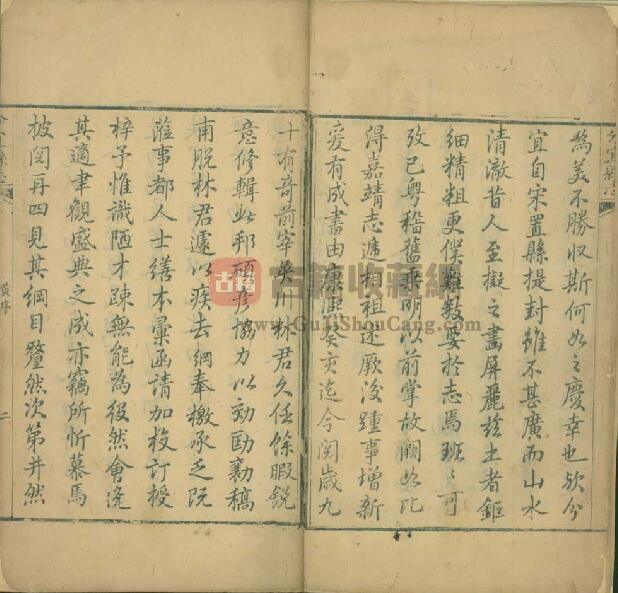 為美不勝収斯何如之慶幸也欤分
宜自宋置縣提封雖不甚廣而山水
清澈昔人至擬之畫屏麗玆土者鉅
細精粗更僕難数要於志焉班〻可
攷已粤稽舊乗明以前掌故闕如比
得嘉靖志逓相祖述厥後踵事增新
爰有成書由康熙癸亥迄今閲歳九
十有奇前宰吳川林君久任餘暇鋭
意修輯此邦碩彦協力以勷勛襄稿
甫脱林君遽以疾去綱奉檄承乏既
蒞事都人士繕本彙函請加校訂授
梓予惟識陋才疎無能為役然會逢
其適聿觀盛典之成亦竊所忻慕焉
披閲再四見其綱目釐然次第井然
分宜縣志
黄序
二
古籍收藏網
www.GuJiShouCang.com